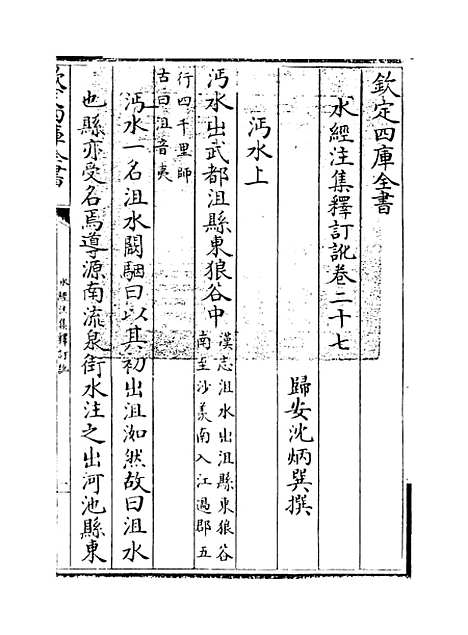 欽定四庫全書
水經注集釋訂訛卷二十七
歸安沈炳巽撰
沔水上
沔水出武都沮縣東狼谷中
漢志沮水出沮縣東狼谷
南至沙羡南入江過郡五
行四千里師
古曰沮音夷
沔水一名沮水闞駰曰以其初出沮洳然故曰沮水
也縣亦受名焉導源南流泉街水注之出河池縣東
水經注集釋訂訛